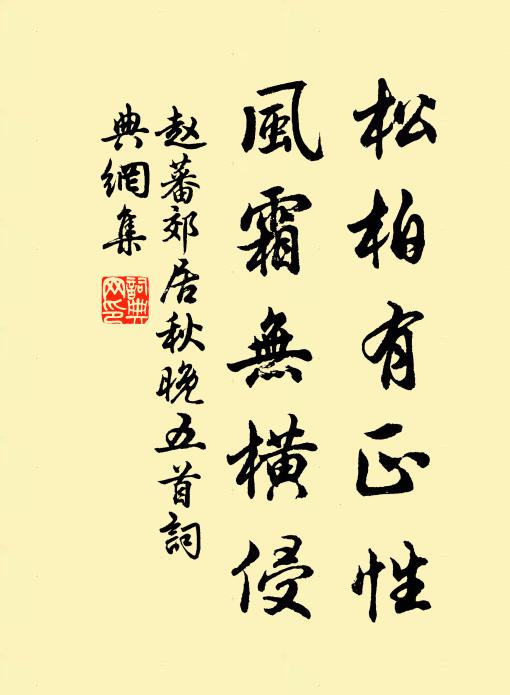 松柏有正性
風霜無橫侵
赵蕃郊居秋晚五首詞
典網集
詞典
网印